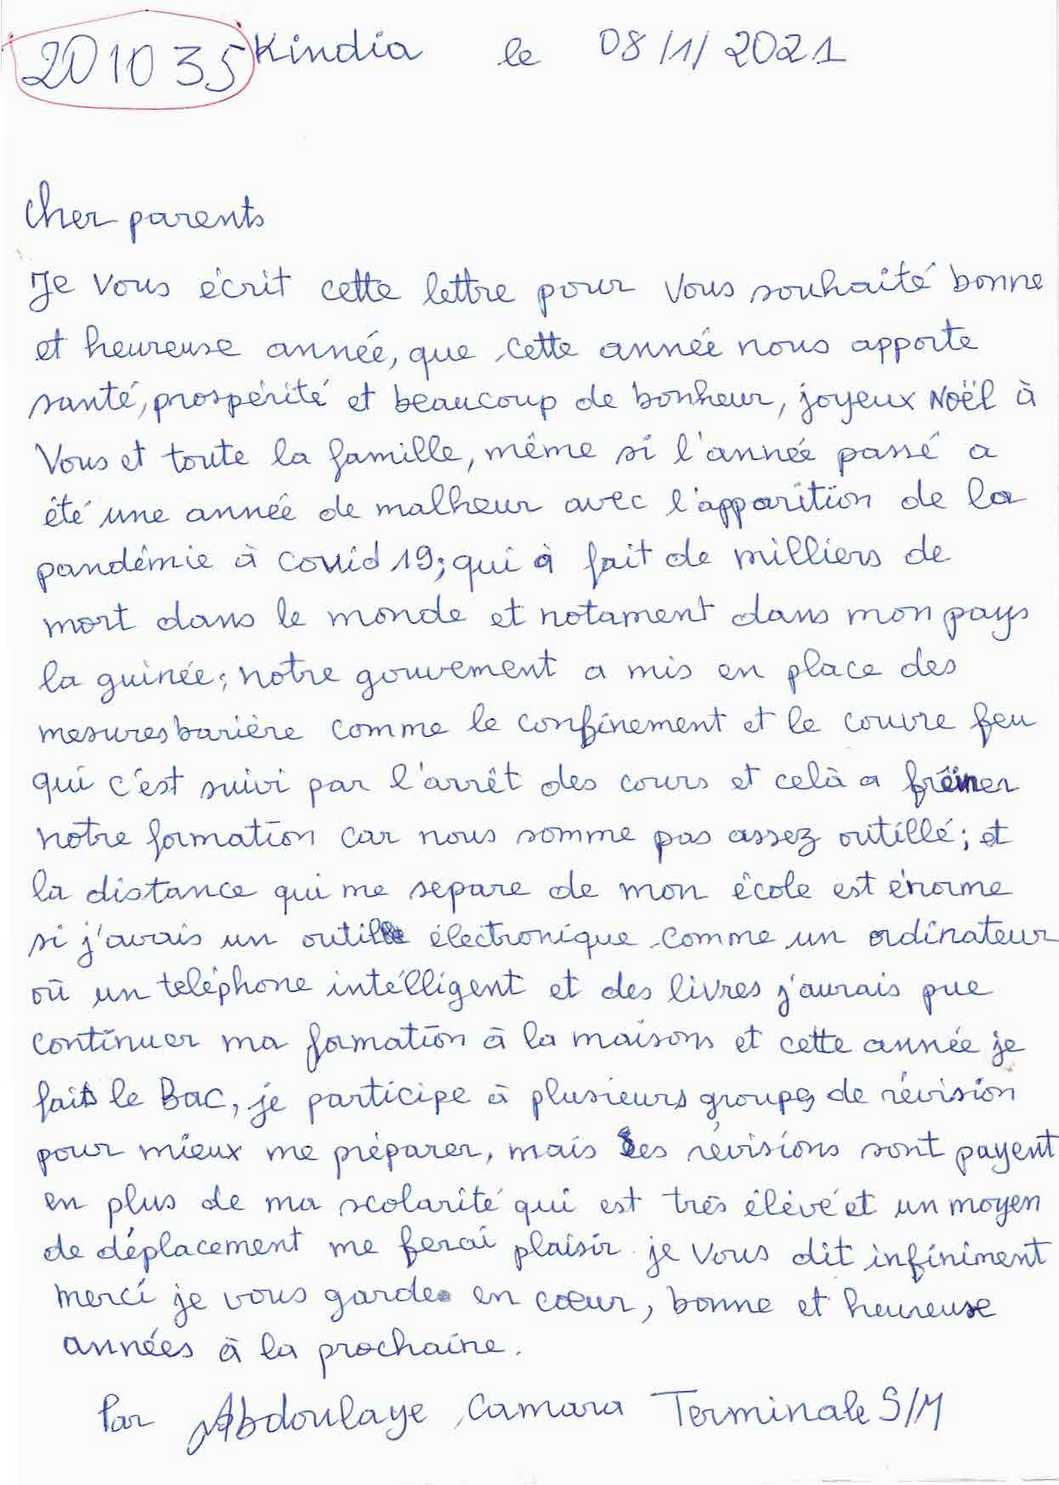 201035 Kindia le 08/1/2021
cher parents
Je vous écrit cette lettre pour vous souhaité bonne
et heureuse année, que cette année nous apporte
santé, prospérité et beaucoup de bonheur, joyeux Noël à
Vous et toute la famille, même si l'année passé a
été une année de malheur avec l'apparition de la
pandémie à covid 19; qui à fait de milliers de
mort dans le monde et notament dans mon pays
la guinée; notre gouvement a mis en place des
mesures barière comme le confinement et le couvre feu
qui c'est suivi par l'arrêt des cours et celà a freiner
notre formation car nous somme pas assez outillé; et
la distance qui me separe de mon école est énorme
si j'avais un outille électronique comme un ordinateur
où un teléphone intélligent et des livres j'aurais pue
continuer ma formation à la maisons et cette année je
faits le Bac, je participe à plusieurs groupes de révision
pour mieux me préparer, mais les révisions sont payent
en plus de ma scolarité qui est très élévé et un moyen
de déplacement me ferai plaisir je vous dit infiniment
merci je vous garde en cœur, bonne et heureuse
années à la prochaine.
Par Abdoulaye Camara Terminale S/M